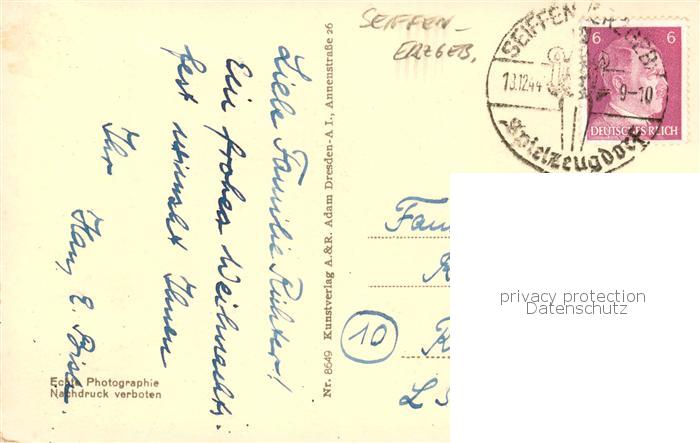 SEIFFEN-
ERZGEB.
SEIFFEN (ERZGEB.)
13.12.44 9-10
Spielzeugdorf
6 6
DEUTSCHES REICH
Liebe Familie Richter!
Ein frohes Weihnachts-
fest wünscht Ihnen
Ihr
Hans E.
Echte Photographie
Nachdruck verboten
Nr. 8649 Kunstverlag A.&R. Adam Dresden-A I., Annenstraße 26
Fam
R
10
K
L S
privacy protection
Datenschutz